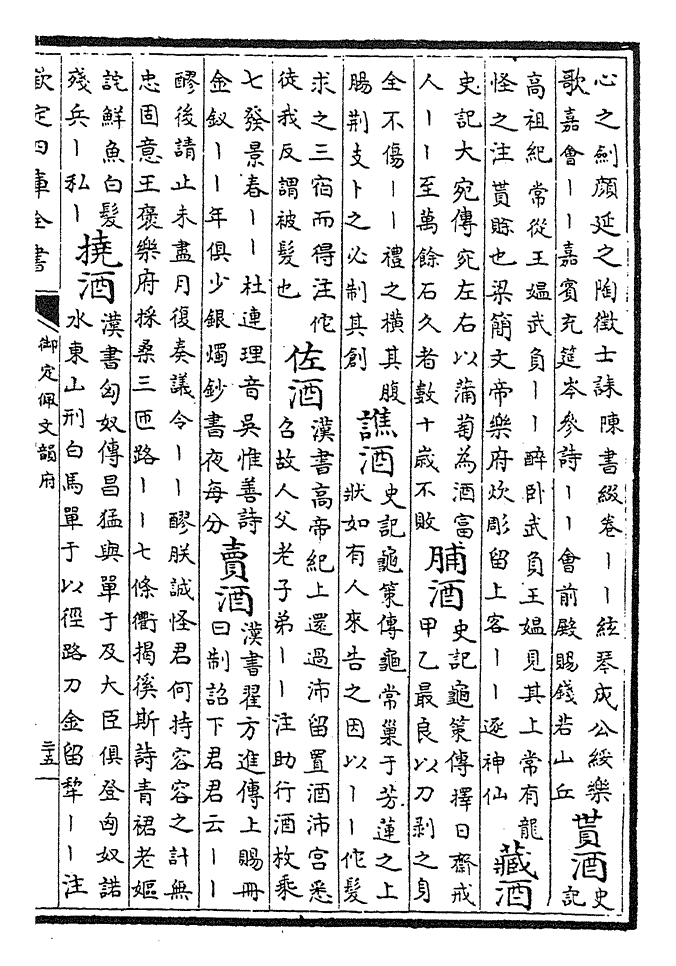 心之劍顔延之陶徵士誄陳書綴卷丨丨絃琴成公綏樂
歌嘉會丨丨嘉賓充筵岑參詩丨丨會前殿賜錢若山丘
貰酒
史
記
高祖紀常從王媪武負丨丨醉卧武負王媪見其上常有龍
怪之注貰賖也梁簡文帝樂府炊彫留上客丨丨逐神仙
藏酒
史記大宛傳宛左右以蒲萄為酒富
人丨丨至萬餘石久者數十歲不敗
脯酒
史記龜策傳擇日齋戒
甲乙最良以刀剥之身
全不傷丨丨禮之横其腹
腸荆支卜之必制其創
譙酒
史記龜策傳龜常巢于芳蓮之上
狀如有人來告之因以丨丨佗髮
求之三宿而得注佗
徒我反謂被髮也
佐酒
漢書高帝紀上還過沛留置酒沛宫悉
召故人父老子弟丨丨注助行酒枚乘
七發景春丨丨杜連理音吳惟善詩
金釵丨丨年俱少銀燭鈔書夜每分
賣酒
漢書翟方進傳上賜冊
曰制詔下君君云丨丨
醪後請止未盡月復奏議令丨丨醪朕誠怪君何持容容之計無
忠固意王褒樂府採桑三匝路丨丨七條衢揭徯斯詩青裙老嫗
詫鮮魚白髮
殘兵丨私丨
撓酒
漢書匈奴傳昌猛與單于及大臣俱登匈奴諾
水東山刑白馬單于以徑路刀金留犂丨丨注
欽定四庫全書
御定佩文韻府
二五